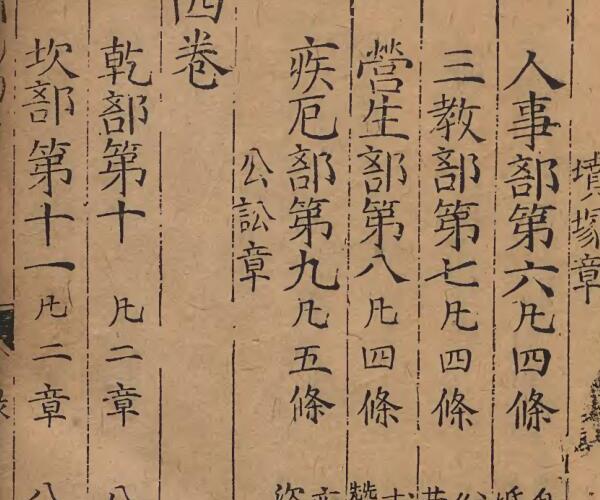 墳塚章
人事部第六凡四條
三教部第七凡四條
營生部第八凡四條
疾厄部第九凡五條
公訟章
四卷
乾部第十 凡二章
坎部第十一凡二章